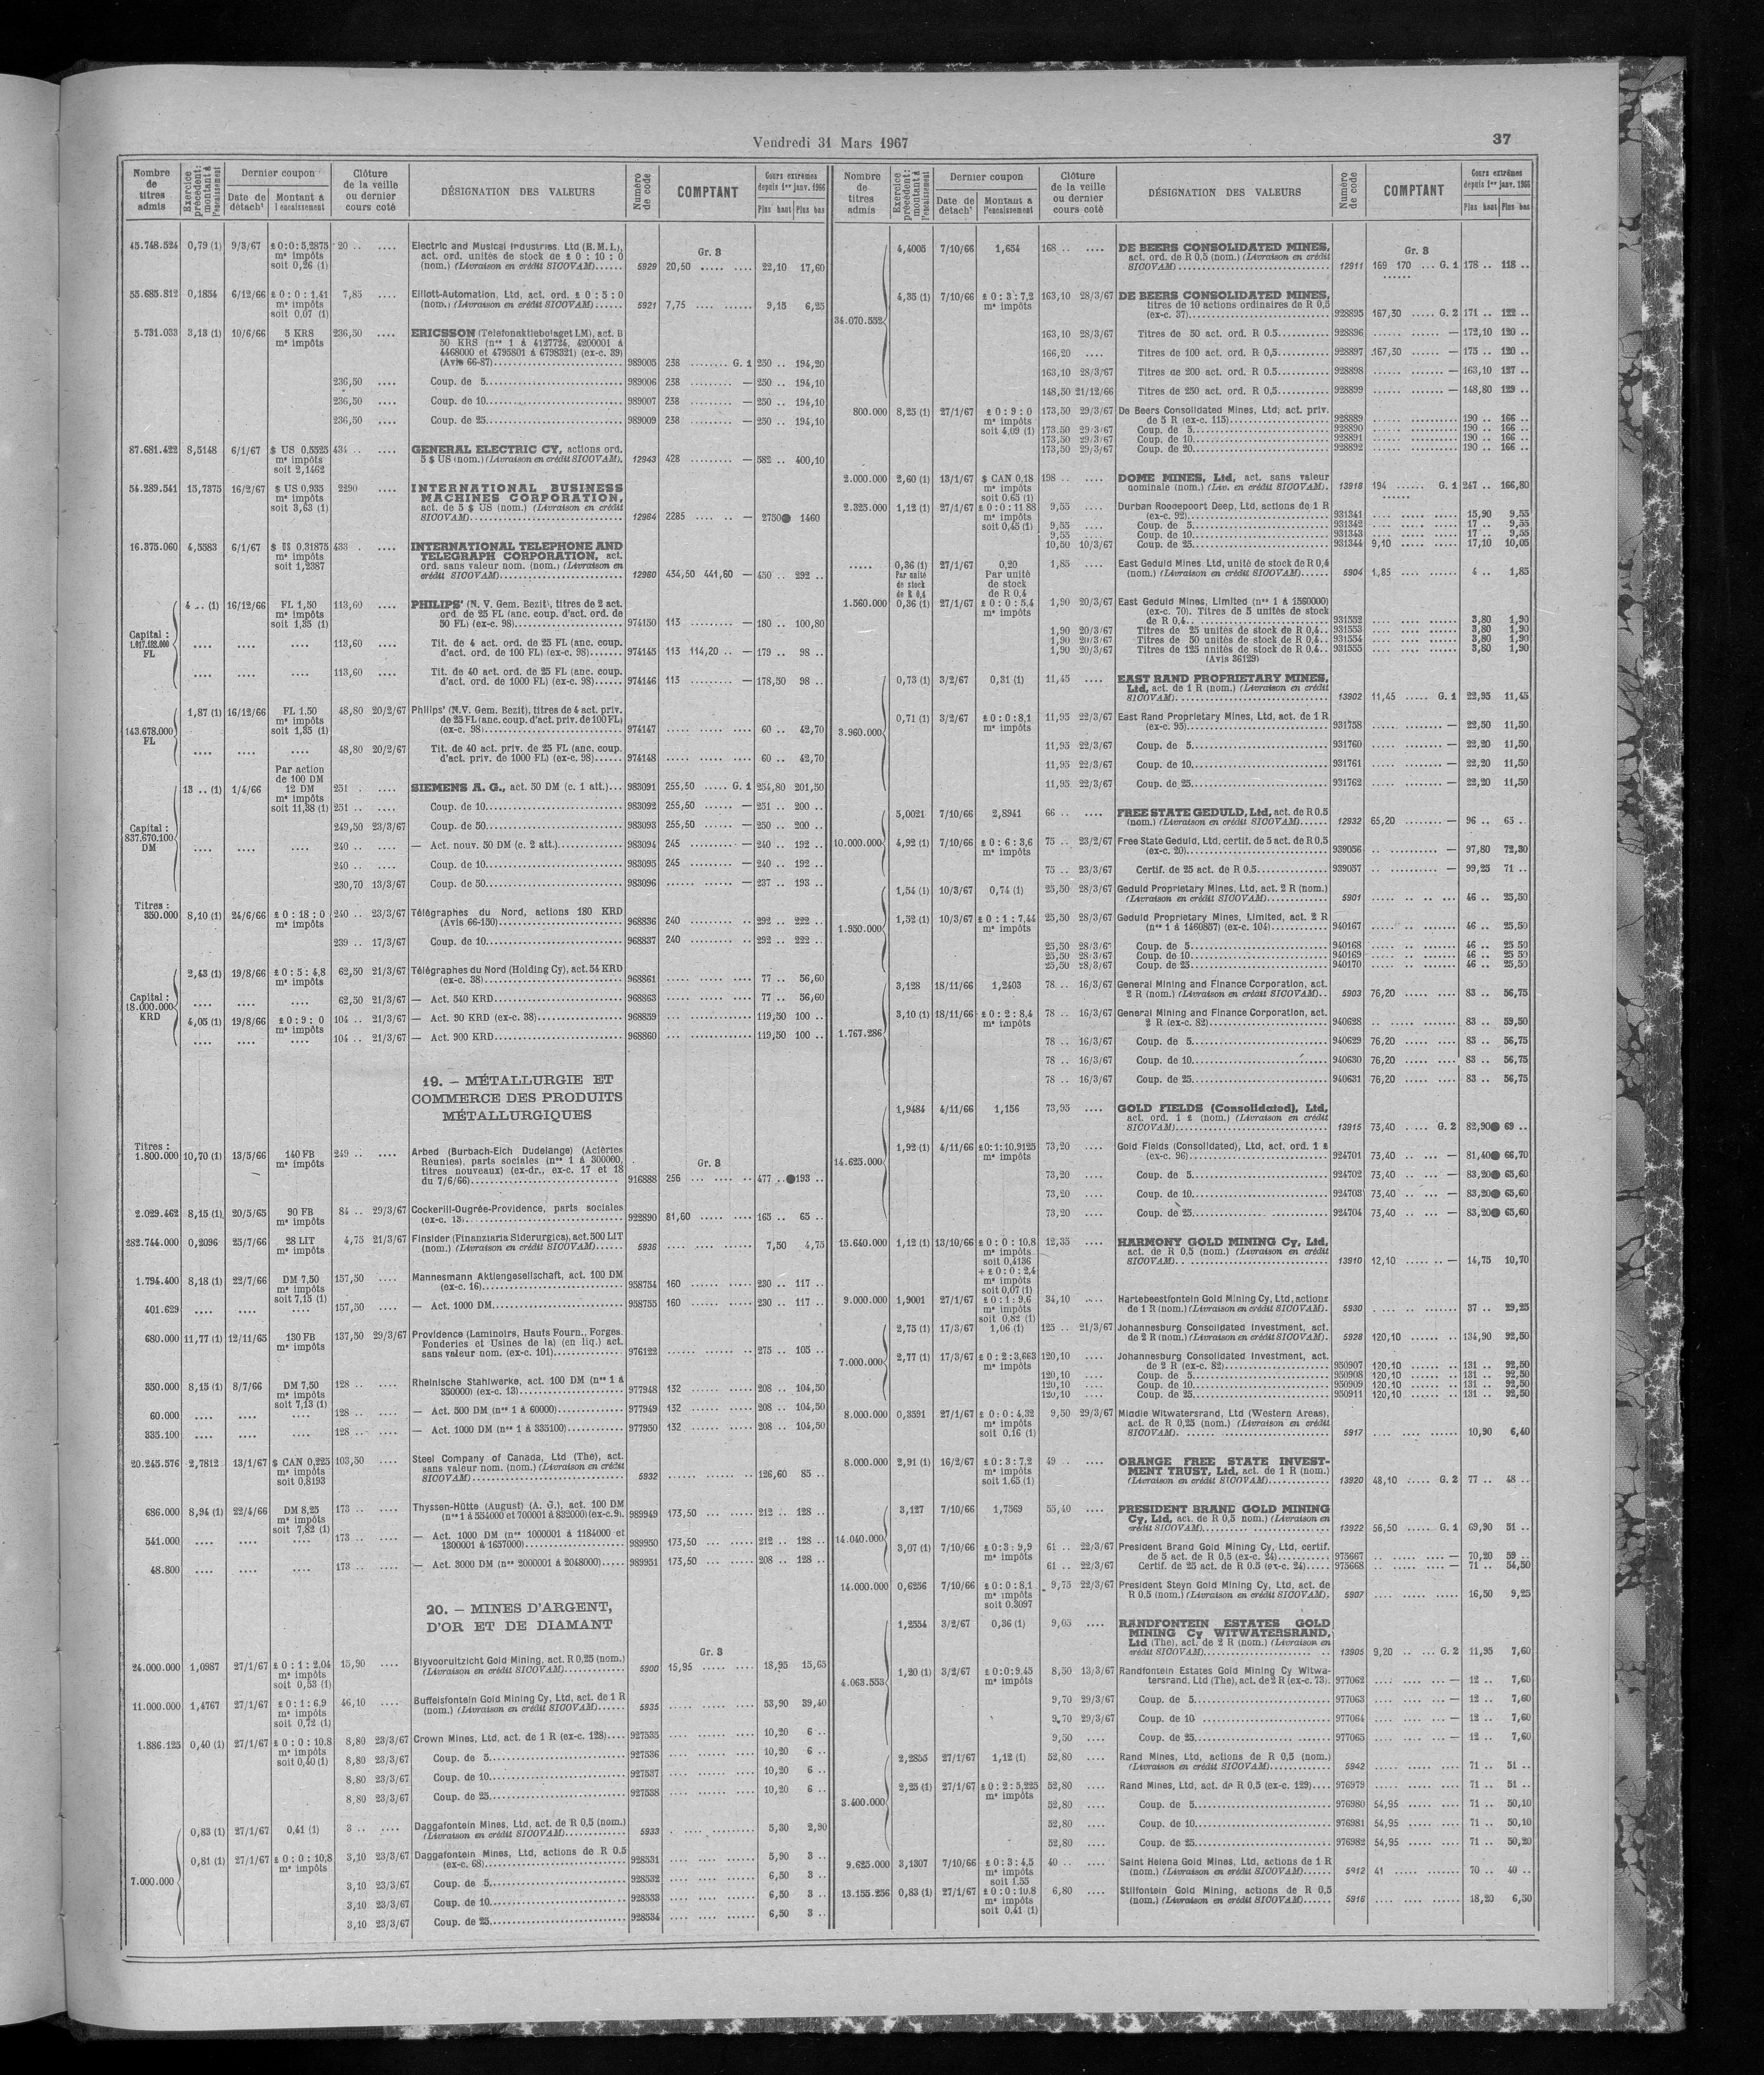 Vendredi 31 Mars 1967
37
Nombre de titres admis | Exercice précédent: montant à l'encaissement | Dernier coupon | Date de détach^t | Montant à l'encaissement | Clôture de la veille ou dernier cours coté | DÉSIGNATION DES VALEURS | Numéro de code | COMPTANT | Cours extrêmes depuis 1er janv. 1966 | Plus haut | Plus bas
45.748.524 0,79 (1) 9/3/67 £ 0:0:5,2875 20 .. .... Electric and Musical Industries, Ltd (E.M.I.), Gr. 3
m^s impôts act. ord. unités de stock de £ 0 : 10 : 0
soit 0,26 (1) (nom.) (Livraison en crédit SICOVAM)...... 5929 20,50 ..... .... 22,10 17,60
55.685.812 0,1854 6/12/66 £ 0 : 0 : 1,41 7,85 .... Elliott-Automation, Ltd, act. ord. £ 0 : 5 : 0
m^s impôts (nom.) (Livraison en crédit SICOVAM)...... 5921 7,75 .... ...... 9,15 6,25
soit 0,07 (1)
5.731.033 3,13 (1) 10/6/66 5 KRS 236,50 .... ERICSSON (Telefonaktiebolaget LM), act. B
m^s impôts 50 KRS (n^os 1 à 4127724, 4200001 à
4468000 et 4795801 à 6798321) (ex-c. 39)
(Avis 66-87) 989005 238 ........ G. 1 250 .. 194,20
236,50 .... Coup. de 5 989006 238 ......... — 250 .. 194,10
236,50 .... Coup. de 10 989007 238 ......... — 250 .. 194,10
236,50 .... Coup. de 25 989009 238 ......... — 250 .. 194,10
87.681.422 8,5148 6/1/67 $ US 0,5525 434 .. .... GENERAL ELECTRIC CY, actions ord.
m^s impôts 5 $ US (nom.) (Livraison en crédit SICOVAM). 12943 428 ......... — 582 .. 400,10
soit 2,1462
54.289.541 15,7375 16/2/67 $ US 0,935 2290 .... INTERNATIONAL BUSINESS
m^s impôts MACHINES CORPORATION,
soit 3,63 (1) act. de 5 $ US (nom.) (Livraison en crédit
SICOVAM) 12964 2285 .... .. — 2750● 1460
16.375.060 4,5583 6/1/67 $ US 0,31875 433 . .... INTERNATIONAL TELEPHONE AND
m^s impôts TELEGRAPH CORPORATION, act.
soit 1,2387 ord. sans valeur nom. (nom.) (Livraison en
crédit SICOVAM) 12960 434,50 441,60 — 450 .. 292 ..
Capital : 1.017.122.000 FL
4 .. (1) 16/12/66 FL 1,50 113,60 .... PHILIPS' (N. V. Gem. Bezit), titres de 2 act.
m^s impôts ord de 25 FL (anc. coup. d'act. ord. de
soit 1,35 (1) 50 FL) (ex-c. 98) 974150 113 ......... — 180 .. 100,80
.... .... .... 113,60 .... Tit. de 4 act. ord. de 25 FL (anc. coup.
d'act. ord. de 100 FL) (ex-c. 98) 974145 113 114,20 .. — 179 .. 98 ..
.... .... .... 113,60 .... Tit. de 40 act. ord. de 25 FL (anc. coup.
d'act. ord. de 1000 FL) (ex-c. 98) 974146 113 ......... — 178,50 98 ..
143.678.000 FL
1,87 (1) 16/12/66 FL 1,50 48,80 20/2/67 Philips' (N.V. Gem. Bezit), titres de 4 act. priv.
m^s impôts de 25 FL (anc. coup. d'act. priv. de 100 FL)
soit 1,35 (1) (ex-c. 98) 974147 ..... .... ..... 60 .. 42,70
.... .... .... 48,80 20/2/67 Tit. de 40 act. priv. de 25 FL (anc. coup.
d'act. priv. de 1000 FL) (ex-c. 98) 974148 ..... .... ..... 60 .. 42,70
Capital : 837.670.100 DM
Par action
de 100 DM
13 .. (1) 1/4/66 12 DM 251 . .... SIEMENS A. G., act. 50 DM (c. 1 att.) 983091 255,50 ..... G. 1 254,80 201,50
m^s impôts
soit 11,38 (1) 251 .. .... Coup. de 10 983092 255,50 ...... — 251 .. 200 ..
249,50 23/3/67 Coup. de 50 983093 255,50 ...... — 250 .. 200 ..
.... .... .... 240 .. .... — Act. nouv. 50 DM (c. 2 att.) 983094 245 ......... — 240 .. 192 ..
240 .. .... Coup. de 10 983095 245 ......... — 240 .. 192 ..
230,70 13/3/67 Coup. de 50 983096 ...... ...... — 237 .. 193 ..
Titres :
350.000 8,10 (1) 24/6/66 £ 0 : 18 : 0 240 .. 23/3/67 Télégraphes du Nord, actions 180 KRD
m^s impôts (Avis 66-150) 968836 240 ......... .. 292 .. 222 ..
239 .. 17/3/67 Coup. de 10 968837 240 ......... .. 292 .. 222 ..
Capital : 18.000.000 KRD
2,43 (1) 19/8/66 £ 0 : 5 : 4,8 62,50 21/3/67 Télégraphes du Nord (Holding Cy), act. 54 KRD
m^s impôts (ex-c. 38) 968861 ..... ..... .... 77 .. 56,60
.... .... .... 62,50 21/3/67 — Act. 540 KRD 968863 ..... ..... .... 77 .. 56,60
4,05 (1) 19/8/66 £ 0 : 9 : 0 104 .. 21/3/67 — Act. 90 KRD (ex-c. 38) 968859 ... ............ 119,50 100 ..
m^s impôts
.... .... .... 104 .. 21/3/67 — Act. 900 KRD 968860 ... ............ 119,50 100 ..
19. — MÉTALLURGIE ET
COMMERCE DES PRODUITS
MÉTALLURGIQUES
Titres :
1.800.000 10,70 (1) 13/5/66 140 FB 249 .. .... Arbed (Burbach-Eich Dudelange) (Aciéries Gr. 3
m^s impôts Réunies), parts sociales (n^os 1 à 300000,
titres nouveaux) (ex-dr., ex-c. 17 et 18
du 7/6/66) 916888 256 ... .... .. 477 .. ●193 ..
2.029.462 8,15 (1) 20/5/65 90 FB 84 .. 29/3/67 Cockerill-Ougrée-Providence, parts sociales
m^s impôts (ex-c. 13) 922890 81,60 ..... .... 165 .. 65 ..
282.744.000 0,2096 25/7/66 28 LIT 4,75 21/3/67 Finsider (Finanziaria Siderurgica), act. 500 LIT
m^s impôts (nom.) (Livraison en crédit SICOVAM)...... 5936 .... ..... .... 7,50 4,75
1.794.400 8,18 (1) 22/7/66 DM 7,50 157,50 .... Mannesmann Aktiengesellschaft, act. 100 DM
m^s impôts (ex-c. 16) 958754 160 ...... .... 230 .. 117 ..
soit 7,15 (1)
401.629 .... .... .... 157,50 .... — Act. 1000 DM 958755 160 ...... .... 230 .. 117 ..
680.000 11,77 (1) 12/11/65 130 FB 137,50 29/3/67 Providence (Laminoirs, Hauts Fourn., Forges,
m^s impôts Fonderies et Usines de la) (en liq.) act.
sans valeur nom. (ex-c. 101) 976122 ...... ...... .. 275 .. 105 ..
350.000 8,15 (1) 8/7/66 DM 7,50 128 .. .... Rheinische Stahlwerke, act. 100 DM (n^os 1 à
m^s impôts 350000) (ex-c. 13) 977948 132 ...... ..... 208 .. 104,50
soit 7,13 (1)
60.000 .... .... .... 128 .. .... — Act. 500 DM (n^os 1 à 60000) 977949 132 ...... ..... 208 .. 104,50
335.100 .... .... .... 128 .. .... — Act. 1000 DM (n^os 1 à 335100) 977950 132 ...... ..... 208 .. 104,50
20.245.576 2,7812 13/1/67 $ CAN 0,225 103,50 .... Steel Company of Canada, Ltd (The), act.
m^s impôts sans valeur nom. (nom.) (Livraison en crédit
soit 0,8193 SICOVAM) 5932 ...... ... .... 126,60 85 ..
686.000 8,94 (1) 22/4/66 DM 8,25 173 .. .... Thyssen-Hütte (August) (A. G.), act. 100 DM
m^s impôts (n^os 1 à 554000 et 700001 à 832000) (ex-c. 9) 989949 173,50 ... ..... 212 .. 128 ..
soit 7,82 (1)
541.000 .... .... .... 173 .. .... — Act. 1000 DM (n^os 1000001 à 1184000 et
1300001 à 1657000) 989950 173,50 ... ..... 212 .. 128 ..
48.800 .... .... .... 173 .. .... — Act. 3000 DM (n^os 2000001 à 2048000) 989951 173,50 ... ..... 208 .. 128 ..
20. — MINES D'ARGENT,
D'OR ET DE DIAMANT
Gr. 3
24.000.000 1,0987 27/1/67 £ 0 : 1 : 2,04 15,90 .... Blyvooruitzicht Gold Mining, act. R 0,25 (nom.)
m^s impôts (Livraison en crédit SICOVAM) 5900 15,95 ..... .... 18,95 15,65
soit 0,53 (1)
11.000.000 1,4767 27/1/67 £ 0 : 1 : 6,9 46,10 .... Buffelsfontein Gold Mining Cy, Ltd, act. de 1 R
m^s impôts (nom.) (Livraison en crédit SICOVAM)...... 5935 .... ..... ..... 53,90 39,40
soit 0,72 (1)
1.886.125 0,40 (1) 27/1/67 £ 0 : 0 : 10,8 8,80 23/3/67 Crown Mines, Ltd, act. de 1 R (ex-c. 128) 927535 .... .... ...... 10,20 6 ..
m^s impôts
soit 0,40 (1) 8,80 23/3/67 Coup. de 5 927536 .... .... ...... 10,20 6 ..
8,80 23/3/67 Coup. de 10 927537 .... .... ...... 10,20 6 ..
8,80 23/3/67 Coup. de 25 927538 .... .... ...... 10,20 6 ..
7.000.000
0,83 (1) 27/1/67 0,41 (1) 3 .. .... Daggafontein Mines, Ltd, act. de R 0,5 (nom.)
(Livraison en crédit SICOVAM) 5933 .. ........ ..... 5,30 2,90
0,81 (1) 27/1/67 £ 0 : 0 : 10,8 3,10 23/3/67 Daggafontein Mines, Ltd, actions de R 0.5
m^s impôts (ex-c. 68) 928531 .... .... ...... 5,90 3 ..
3,10 23/3/67 Coup. de 5 928532 .... .... ...... 6,50 3 ..
3,10 23/3/67 Coup. de 10 928533 .... .... ...... 6,50 3 ..
3,10 23/3/67 Coup. de 25 928534 .... .... ...... 6,50 3 ..
Nombre de titres admis | Exercice précédent: montant à l'encaissement | Dernier coupon | Date de détach^t | Montant à l'encaissement | Clôture de la veille ou dernier cours coté | DÉSIGNATION DES VALEURS | Numéro de code | COMPTANT | Cours extrêmes depuis 1er janv. 1966 | Plus haut | Plus bas
34.070.552
4,4005 7/10/66 1,654 168 .. .... DE BEERS CONSOLIDATED MINES, Gr. 3
act. ord. de R 0,5 (nom.) (Livraison en crédit
SICOVAM) 12911 169 170 ... G. 1 178 .. 118 ..
4,35 (1) 7/10/66 £ 0 : 3 : 7,2 163,10 28/3/67 DE BEERS CONSOLIDATED MINES,
m^s impôts titres de 10 actions ordinaires de R 0,5
(ex-c. 37) 928895 167,30 ..... G. 2 171 .. 122 ..
163,10 28/3/67 Titres de 50 act. ord. R 0.5 928896 ...... ...... — 172,10 120 ..
166,20 .... Titres de 100 act. ord. R 0,5 928897 167,30 ...... — 175 .. 120 ..
163,10 28/3/67 Titres de 200 act. ord. R 0.5 928898 ...... ...... — 163,10 127 ..
148,50 21/12/66 Titres de 250 act. ord. R 0,5 928899 ...... ...... — 148,80 129 ..
800.000 8,25 (1) 27/1/67 £ 0 : 9 : 0 173,50 29/3/67 De Beers Consolidated Mines, Ltd, act. priv.
m^s impôts de 5 R (ex-c. 115) 928889 ..... .... ..... 190 .. 166 ..
soit 4,09 (1) 173,50 29/3/67 Coup. de 5 928890 ..... .... ..... 190 .. 166 ..
173,50 29/3/67 Coup. de 10 928891 ..... .... ..... 190 .. 166 ..
173,50 29/3/67 Coup. de 20 928892 ..... .... ..... 190 .. 166 ..
2.000.000 2,60 (1) 13/1/67 $ CAN 0,18 198 .. .... DOME MINES, Ltd, act. sans valeur
m^s impôts nominale (nom.) (Liv. en crédit SICOVAM). 13918 194 ...... G. 1 247 .. 166,80
soit 0,65 (1)
2.325.000 1,12 (1) 27/1/67 £ 0 : 0 : 11 88 9,55 .... Durban Roodepoort Deep, Ltd, actions de 1 R
m^s impôts (ex-c. 92) 931341 .... ..... ..... 15,90 9,55
soit 0,45 (1) 9,55 .... Coup. de 5 931342 .... ..... ..... 17 .. 9,55
9,55 .... Coup. de 10 931343 .... ..... ..... 17 .. 9,55
10,50 10/3/67 Coup. de 25 931344 9,10 ..... ..... 17,10 10,05
..... 0,36 (1) 27/1/67 0,20 1,85 .... East Geduld Mines, Ltd, unité de stock de R 0,4
Par unité Par unité (nom.) (Livraison en crédit SICOVAM)...... 5904 1,85 .... ..... 4 .. 1,85
de stock de stock
de R 0,4 de R 0,4
1.560.000 0,36 (1) 27/1/67 £ 0 : 0 : 5,4 1,90 20/3/67 East Geduld Mines, Limited (n^os 1 à 1560000)
m^s impôts (ex-c. 70). Titres de 5 unités de stock
de R 0,4 931552 .... .... ...... 3,80 1,90
1,90 20/3/67 Titres de 25 unités de stock de R 0,4.. 931553 .... .... ...... 3,80 1,90
1,90 20/3/67 Titres de 50 unités de stock de R 0,4.. 931554 .... .... ...... 3,80 1,90
1,90 20/3/67 Titres de 125 unités de stock de R 0,4.. 931555 .... .... ...... 3,80 1,90
(Avis 36129)
3.960.000
0,73 (1) 3/2/67 0,31 (1) 11,45 .... EAST RAND PROPRIETARY MINES,
Ltd, act. de 1 R (nom.) (Livraison en crédit
SICOVAM) 13902 11,45 ..... G. 1 22,95 11,45
0,71 (1) 3/2/67 £ 0 : 0 : 8,1 11,95 22/3/67 East Rand Proprietary Mines, Ltd, act. de 1 R
m^s impôts (ex-c. 95) 931758 .... ........ — 22,50 11,50
11,95 22/3/67 Coup. de 5 931760 .... ........ — 22,20 11,50
11,95 22/3/67 Coup. de 10 931761 .... ........ — 22,20 11,50
11,95 22/3/67 Coup. de 25 931762 .... ........ — 22,20 11,50
10.000.000
5,0021 7/10/66 2,8941 66 .. .... FREE STATE GEDULD, Ltd, act. de R 0.5
(nom.) (Livraison en crédit SICOVAM) 12932 65,20 ........ — 96 .. 65 ..
4,92 (1) 7/10/66 £ 0 : 6 : 3,6 75 .. 23/2/67 Free State Geduld, Ltd, certif. de 5 act. de R 0,5
m^s impôts (ex-c. 20) 939056 .. .......... — 97,80 72,30
75 .. 23/3/67 Certif. de 25 act. de R 0.5 939057 .. .......... — 99,25 71 ..
1.950.000
1,54 (1) 10/3/67 0,74 (1) 25,50 28/3/67 Geduld Proprietary Mines, Ltd, act. 2 R (nom.)
(Livraison en crédit SICOVAM) 5901 ..... .. .. ... 46 .. 25,50
1,52 (1) 10/3/67 £ 0 : 1 : 7,44 25,50 28/3/67 Geduld Proprietary Mines, Limited, act. 2 R
m^s impôts (n^os 1 à 1460857) (ex-c. 104) 940167 ..... .. ...... 46 .. 25,50
25,50 28/3/67 Coup. de 5 940168 ..... .. ...... 46 .. 25 50
25,50 28/3/67 Coup. de 10 940169 ..... .. ...... 46 .. 25 50
25,50 28/3/67 Coup. de 25 940170 ..... .. ...... 46 .. 25,50
1.767.286
3,128 18/11/66 1,2403 78 .. 16/3/67 General Mining and Finance Corporation, act.
2 R (nom.) (Livraison en crédit SICOVAM).. 5903 76,20 ..... .... 83 .. 56,75
3,10 (1) 18/11/66 £ 0 : 2 : 8,4 78 .. 16/3/67 General Mining and Finance Corporation, act.
m^s impôts 2 R (ex-c. 82) 940628 .. ..... .... 83 .. 59,50
78 .. 16/3/67 Coup. de 5 940629 76,20 ..... .... 83 .. 56,75
78 .. 16/3/67 Coup. de 10 940630 76,20 ..... .... 83 .. 56,75
78 .. 16/3/67 Coup. de 25 940631 76,20 ..... .... 83 .. 56,75
14.625.000
1,9484 4/11/66 1,156 73,95 .... GOLD FIELDS (Consolidated), Ltd,
act. ord. 1 £ (nom.) (Livraison en crédit
SICOVAM) 13915 73,40 .... G. 2 82,90● 69 ..
1,92 (1) 4/11/66 £ 0:1:10,9125 73,20 .... Gold Fields (Consolidated), Ltd, act. ord. 1 £
m^s impôts (ex-c. 96) 924701 73,40 .. ... — 81,40● 66,70
73,20 .... Coup. de 5 924702 73,40 .. ... — 83,20● 65,60
73,20 .... Coup. de 10 924703 73,40 .. ... — 83,20● 65,60
73,20 .... Coup. de 25 924704 73,40 .. ... — 83,20● 65,60
15.640.000 1,12 (1) 13/10/66 £ 0 : 0 : 10,8 12,35 .... HARMONY GOLD MINING Cy, Ltd,
m^s impôts act. de R 0,5 (nom.) (Livraison en crédit
soit 0,4136 SICOVAM) 13910 12,10 ..... .. — 14,75 10,70
+ £ 0 : 0 : 2,4
m^s impôts
soit 0,07 (1)
9.000.000 1,9001 27/1/67 £ 0 : 1 : 9,6 34,10 .... Hartebeestfontein Gold Mining Cy, Ltd, actions
m^s impôts de 1 R (nom.) (Livraison en crédit SICOVAM). 5930 .... .. ..... 37 .. 29,25
soit 0,82 (1)
7.000.000
2,75 (1) 17/3/67 1,06 (1) 125 .. 21/3/67 Johannesburg Consolidated Investment, act.
de 2 R (nom.) (Livraison en crédit SICOVAM). 5928 120,10 ...... .. 134,90 92,50
2,77 (1) 17/3/67 £ 0 : 2 : 3,663 120,10 .... Johannesburg Consolidated Investment, act.
m^s impôts de 2 R (ex-c. 82) 950907 120,10 ...... .. 131 .. 92,50
120,10 .... Coup. de 5 950908 120,10 ...... .. 131 .. 92,50
120,10 .... Coup. de 10 950909 120,10 ...... .. 131 .. 92,50
120,10 .... Coup. de 25 950911 120,10 ...... .. 131 .. 92,50
8.000.000 0,3591 27/1/67 £ 0 : 0 : 4,32 9,50 29/3/67 Middle Witwatersrand, Ltd (Western Areas),
m^s impôts act. de R 0,25 (nom.) (Livraison en crédit
soit 0,16 (1) SICOVAM) 5917 .... ..... .... 10,90 6,40
8.000.000 2,91 (1) 16/2/67 £ 0 : 3 : 7,2 49 .. .... ORANGE FREE STATE INVEST-
m^s impôts MENT TRUST, Ltd, act. de 1 R (nom.)
soit 1,65 (1) (Livraison en crédit SICOVAM) 13920 48,10 ..... G. 2 77 .. 48 ..
14.040.000
3,127 7/10/66 1,7569 55,40 .... PRESIDENT BRAND GOLD MINING
Cy, Ltd, act. de R 0,5 nom.) (Livraison en
crédit SICOVAM) 13922 56,50 ..... G. 1 69,90 51 ..
3,07 (1) 7/10/66 £ 0 : 3 : 9,9 61 .. 22/3/67 President Brand Gold Mining Cy, Ltd, certif.
m^s impôts de 5 act. de R 0,5 (ex-c. 24) 975667 .. ..... .... — 70,20 59 ..
61 .. 22/3/67 Certif. de 25 act. de R 0.5 (ex-c. 24) 975668 .. ..... .... — 71 .. 54,50
14.000.000 0,6256 7/10/66 £ 0 : 0 : 8,1 9,75 22/3/67 President Steyn Gold Mining Cy, Ltd, act. de
m^s impôts R 0.5 (nom.) (Livraison en crédit SICOVAM). 5907 .... ..... .... 16,50 9,25
soit 0.3097
4.063.553
1,2554 3/2/67 0,36 (1) 9,05 .... RANDFONTEIN ESTATES GOLD
MINING Cy WITWATERSRAND,
Ltd (The), act. de 2 R (nom.) (Livraison en
crédit SICOVAM) 13905 9,20 .. ... G. 2 11,95 7,60
1,20 (1) 3/2/67 £ 0:0:9,45 8,50 13/3/67 Randfontein Estates Gold Mining Cy Witwa-
m^s impôts tersrand, Ltd (The), act. de 2 R (ex-c. 73). 977062 .... .... ... — 12 .. 7,60
9,70 29/3/67 Coup. de 5 977063 .... .... ... — 12 .. 7,60
9,70 29/3/67 Coup. de 10 977064 .... .... ... — 12 .. 7,60
9,50 .... Coup. de 25 977065 .... .... ... — 12 .. 7,60
3.400.000
2,2855 27/1/67 1,12 (1) 52,80 .... Rand Mines, Ltd, actions de R 0,5 (nom.)
(Livraison en crédit SICOVAM) 5942 .... ..... .... 71 .. 51 ..
2,25 (1) 27/1/67 £ 0 : 2 : 5,225 52,80 .... Rand Mines, Ltd, act. de R 0,5 (ex-c. 129) 976979 ..... ..... .... 71 .. 51 ..
m^s impôts
52,80 .... Coup. de 5 976980 54,95 ..... .... 71 .. 50,10
52,80 .... Coup. de 10 976981 54,95 ..... .... 71 .. 50,10
52,80 .... Coup. de 25 976982 54,95 ..... .... 71 .. 50,20
9.625.000 3,1307 7/10/66 £ 0 : 3 : 4,5 40 .. .... Saint Helena Gold Mines, Ltd, actions de 1 R
m^s impôts (nom.) (Livraison en crédit SICOVAM)...... 5912 41 .... ..... 70 .. 40 ..
soit 1.55
13.155.256 0,83 (1) 27/1/67 £ 0 : 0 : 10.8 6,80 .... Stilfontein Gold Mining, actions de R 0,5
m^s impôts (nom.) (Livraison en crédit SICOVAM)...... 5916 .... ..... .... 18,20 6,50
soit 0,41 (1)